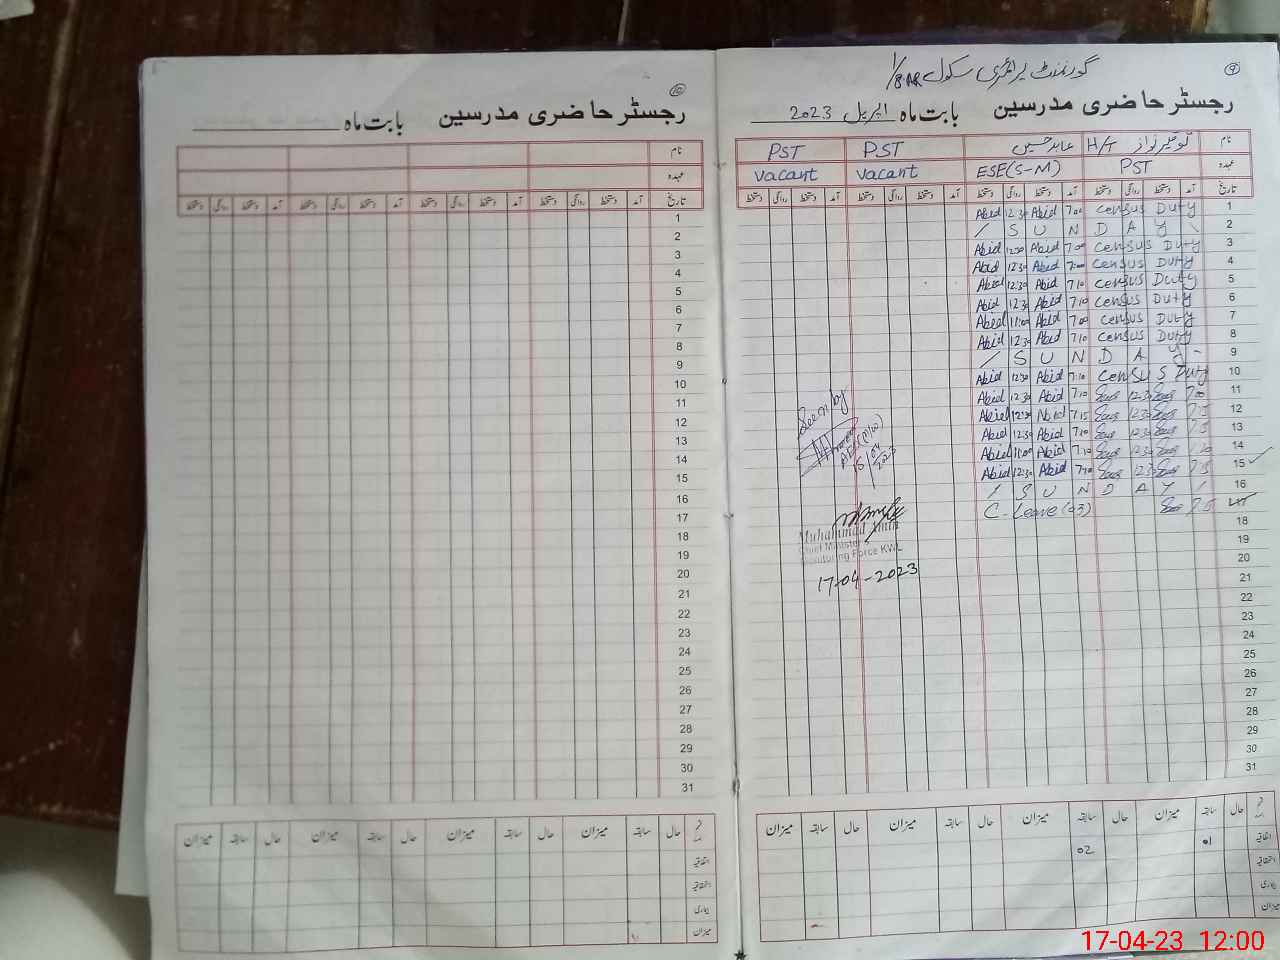 گورنمنٹ پرائمری سکول 1/8AR
9
رجسٹر حاضری مدرسین بابت ماہ اپریل 2023
نام توقیر نواز H/T عابد حسین PST PST
عہدہ PST ESE(S-M) vacant vacant
تاریخ آمد دستخط روانگی دستخط آمد دستخط روانگی دستخط آمد دستخط روانگی دستخط آمد دستخط روانگی دستخط
Abid 12:30 Abid 7:00 Census Duty 1
/ S U N D A Y \ 2
Abid 12:30 Abid 7:00 Census Duty 3
Abid 12:30 Abid 7:00 Census Duty 4
Abid 12:30 Abid 7:10 Census Duty 5
Abid 12:30 Abid 7:10 Census Duty 6
Abid 11:00 Abid 7:00 Census Duty 7
Abid 12:30 Abid 7:10 Census Duty 8
/ S U N D A Y - 9
Abid 12:30 Abid 7:10 Census Duty 10
Abid 12:30 Abid 7:10 12:30 7:00 11
Abid 12:30 Abid 7:15 12:30 12
Abid 12:30 Abid 7:10 12:30 13
Abid 11:00 Abid 7:10 14
Abid 12:30 Abid 7:10 12:30 15
/ S U N D A Y / 16
C. Leave (03) 17
18
19
20
21
22
23
24
25
26
27
28
29
30
31
Seen by
15/04/2023
Muhammad Amin
Chief Minister
Monitoring Force KWL
17-04-2023
حال سابقہ میزان حال سابقہ میزان حال سابقہ میزان حال سابقہ میزان
اتفاقیہ 01 02
استحقاقیہ
بیماری
میزان
10
رجسٹر حاضری مدرسین بابت ماہ
نام
عہدہ
تاریخ آمد دستخط روانگی دستخط آمد دستخط روانگی دستخط آمد دستخط روانگی دستخط آمد دستخط روانگی دستخط
1
2
3
4
5
6
7
8
9
10
11
12
13
14
15
16
17
18
19
20
21
22
23
24
25
26
27
28
29
30
31
حال سابقہ میزان حال سابقہ میزان حال سابقہ میزان حال سابقہ میزان
اتفاقیہ
استحقاقیہ
بیماری
میزان
17-04-23 12:00